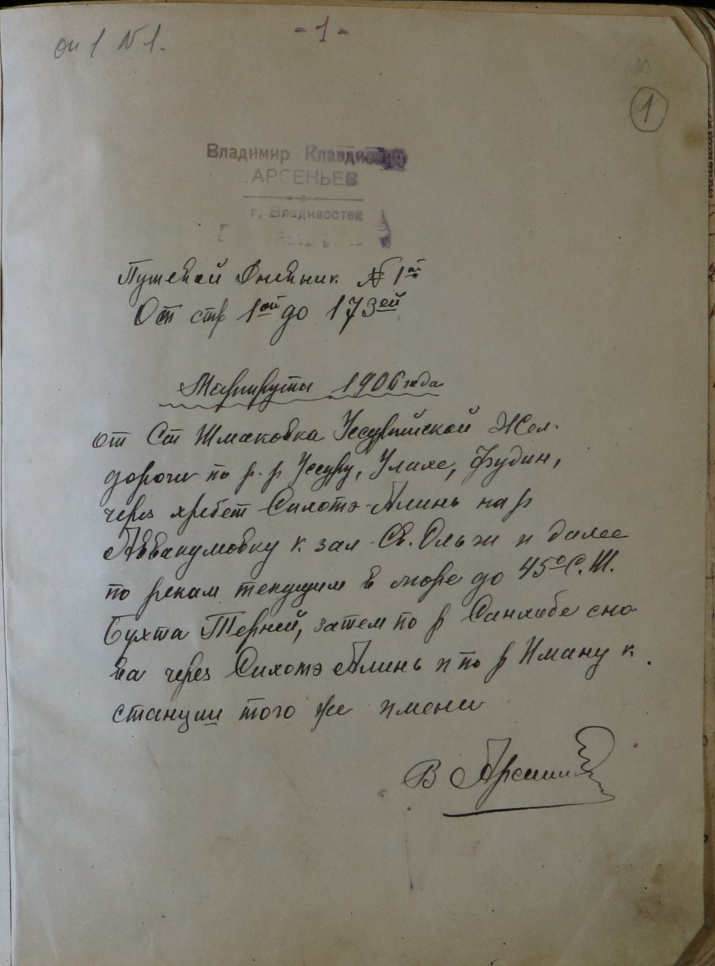 оп 1 №1.
- 1 -
1
Владимир Клавдиевич
АРСЕНЬЕВ
г. Владивосток
Путевой Дневник №1й
От стр 1ой до 173ей
Маршруты 1906 года
от Ст Шмаковка Уссурийской Жел.
дороги по р.р Уссури, Улахе, Фудин,
через хребет Сихотэ-Алинь на р
Аввакумовку к зал. Св. Ольги и далее
по рекам текущим в море до 45° С.Ш.
Бухта Терней, затем по р Санхобе сно-
ва через Сихотэ Алинь и по р Иману к
станции того же имени
В Арсеньев